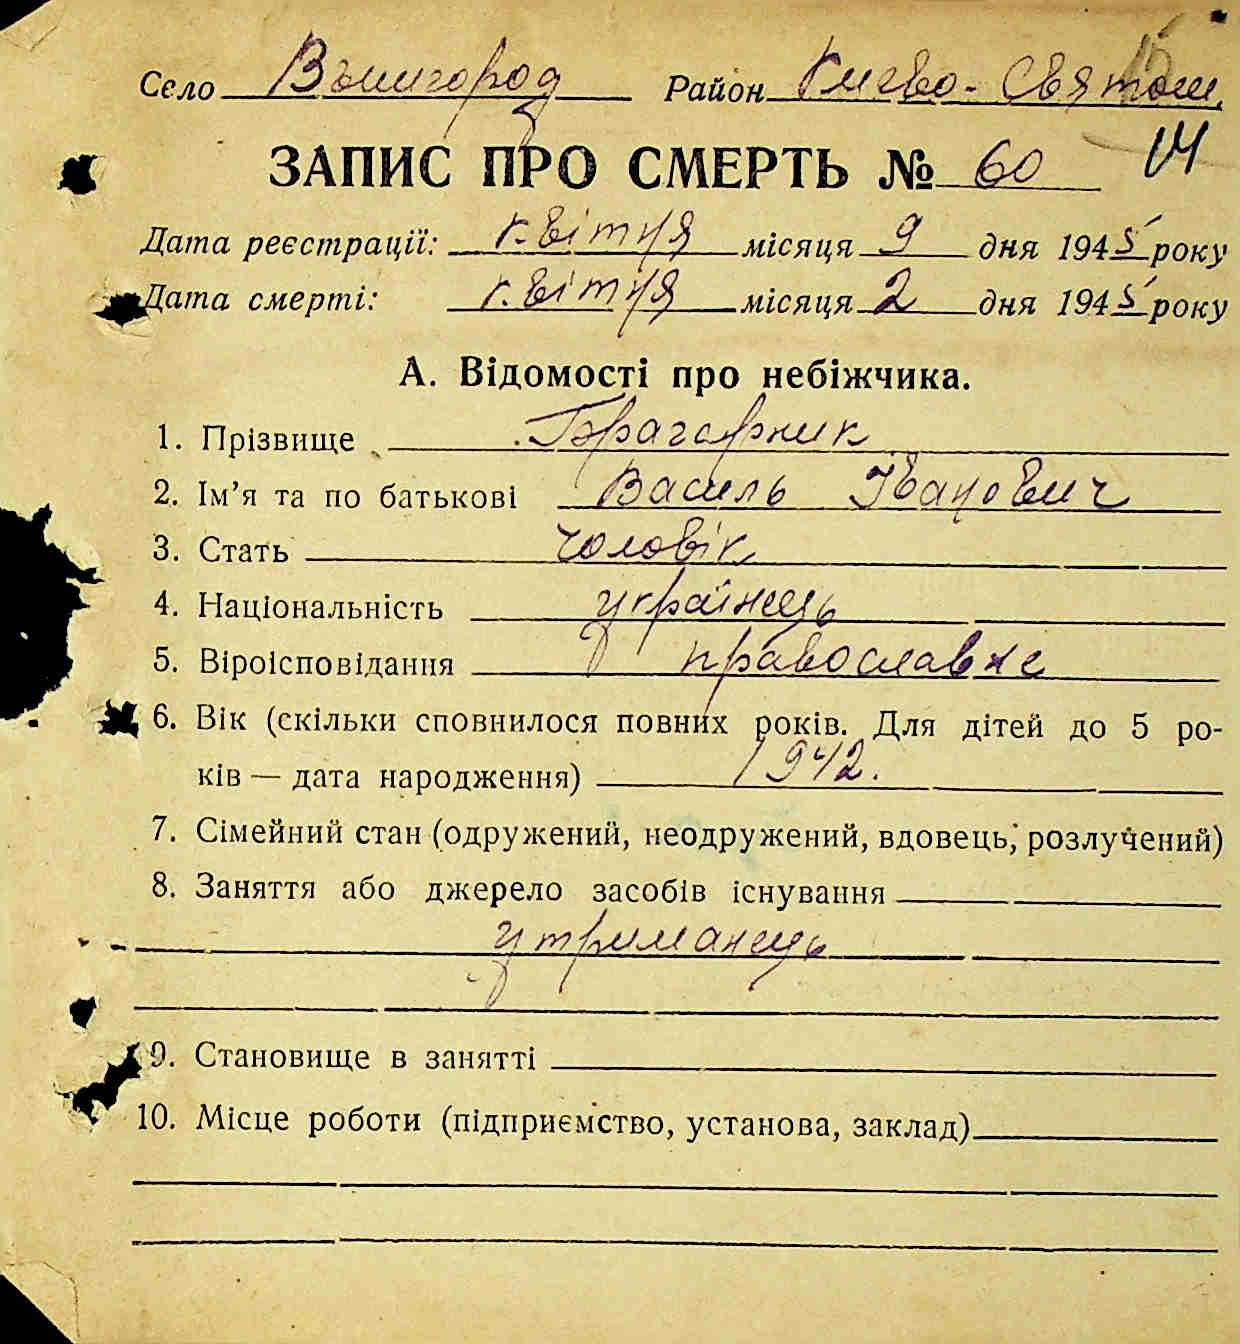 Село Вышгород Район Києво-Святош.
ЗАПИС ПРО СМЕРТЬ № 60 14
Дата реєстрації: квітня місяця 9 дня 1945 року
Дата смерті: квітня місяця 2 дня 1945 року
А. Відомості про небіжчика.
1. Прізвище Брагарник
2. Ім’я та по батькові Василь Іванович
3. Стать чоловік
4. Національність українець
5. Віроісповідання православне
6. Вік (скільки сповнилося повних років. Для дітей до 5 ро-
ків — дата народження) 1942.
7. Сімейний стан (одружений, неодружений, вдовець, розлучений)
8. Заняття або джерело засобів існування
утриманець
9. Становище в занятті
10. Місце роботи (підприємство, установа, заклад)